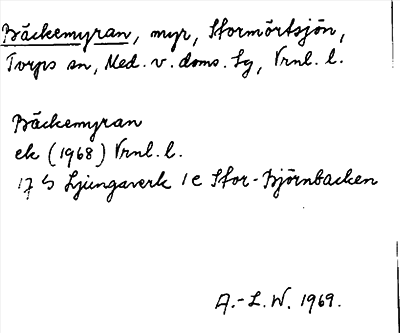 Bäckemyran, myr, Stormörtsjön,
Torps sn, Med. v. doms. Sg, Vrnl. l.
Bäckemyran
ek (1968) Vrnl. l.
17 G Ljungaverk 1 e Stor-Björnbacken
A.-L. W. 1969.